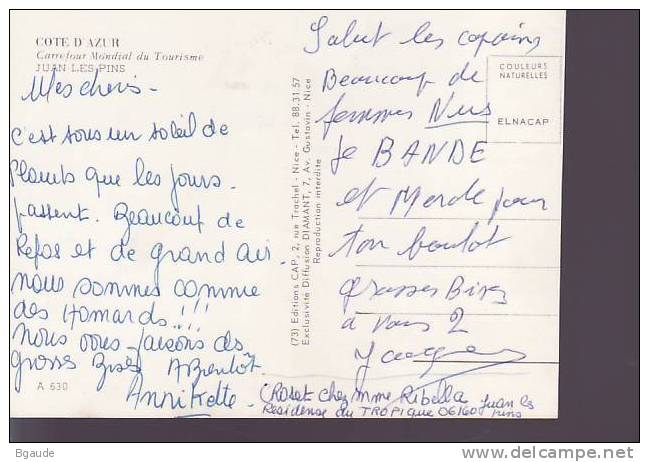 COTE D'AZUR
Carrefour Mondial du Tourisme
JUAN LES PINS
Mes chéris -
c'est sous un soleil de
plomb que les jours
passent. Beaucoup de
Repos et de grand air
nous sommes comme
des Homards !!!
nous vous faisons des
grosses Bises A Bientôt
Annikette
A 630
(73) Editions CAP, 2, rue Trachel - Nice - Tel. 88.31.57
Exclusivité Diffusion DIAMANT, 7, Av. Gustavin - Nice
Reproduction interdite
Salut les copains
Beaucoup de
femmes Nus
Je BANDE
et Merde pour
ton boulot
Grosses Bises
à vous 2
Jacques
COULEURS
NATURELLES
ELNACAP
(Roset chez Mme Ribella
Résidense du TROPique 06160 Juan les
pins
Bgaude
delcampe.net